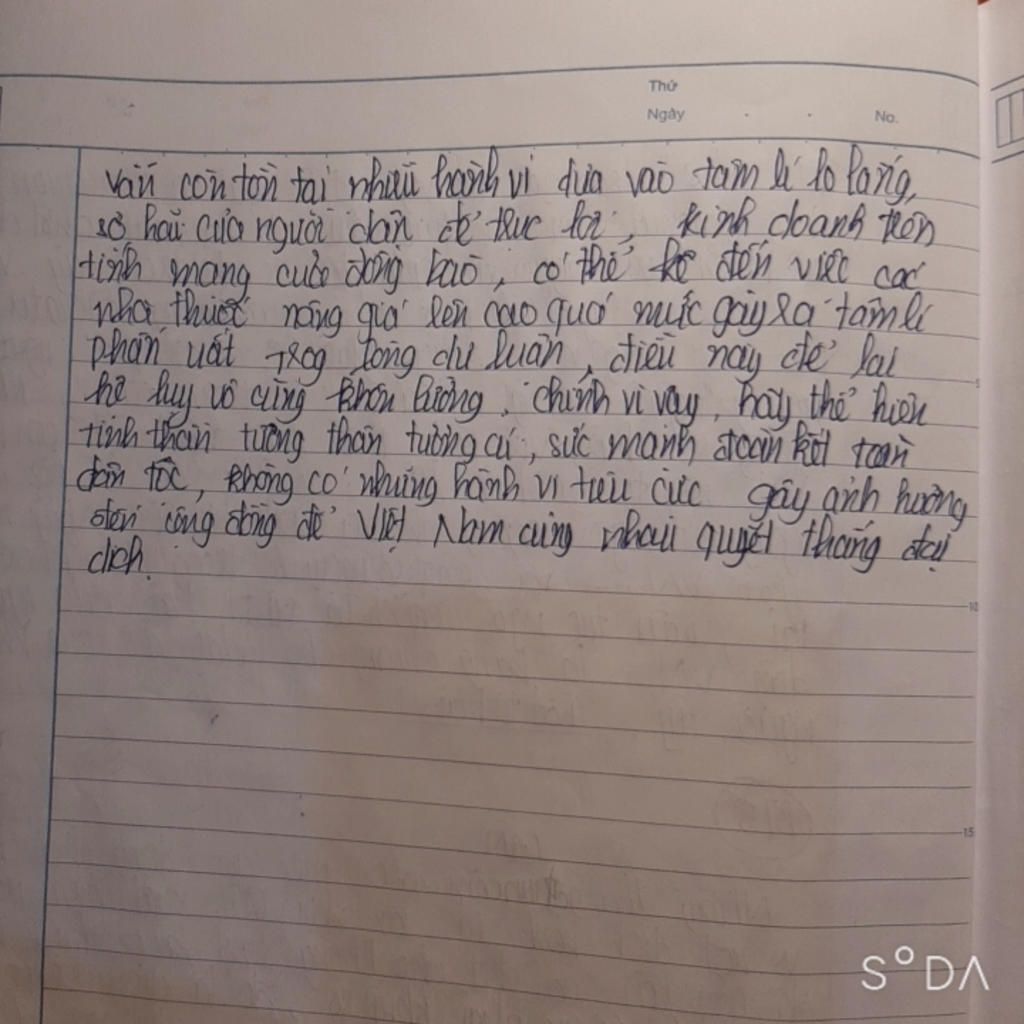 Thứ
Ngày . . No.
vẫn còn tồn tại nhiều hành vi dựa vào tâm lí lo lắng,
sợ hãi của người dân để trục lợi, kinh doanh trên
tính mạng cuộc đồng bào, có thể kể đến việc các
nhà thuốc nâng giá lên cao quá mức gây ra tâm lí
phẫn uất trog lòng dư luận, điều này để lại
hệ lụy vô cùng khôn lường. chính vì vậy, hãy thể hiện
tinh thần tương thân tương ái, sức mạnh đoàn kết toàn
dân tộc, không có những hành vi tiêu cực gây ảnh hưởng
đến cộng đồng để Việt Nam cùng nhau quyết thắng đại
dịch.
5
10
15
SODA